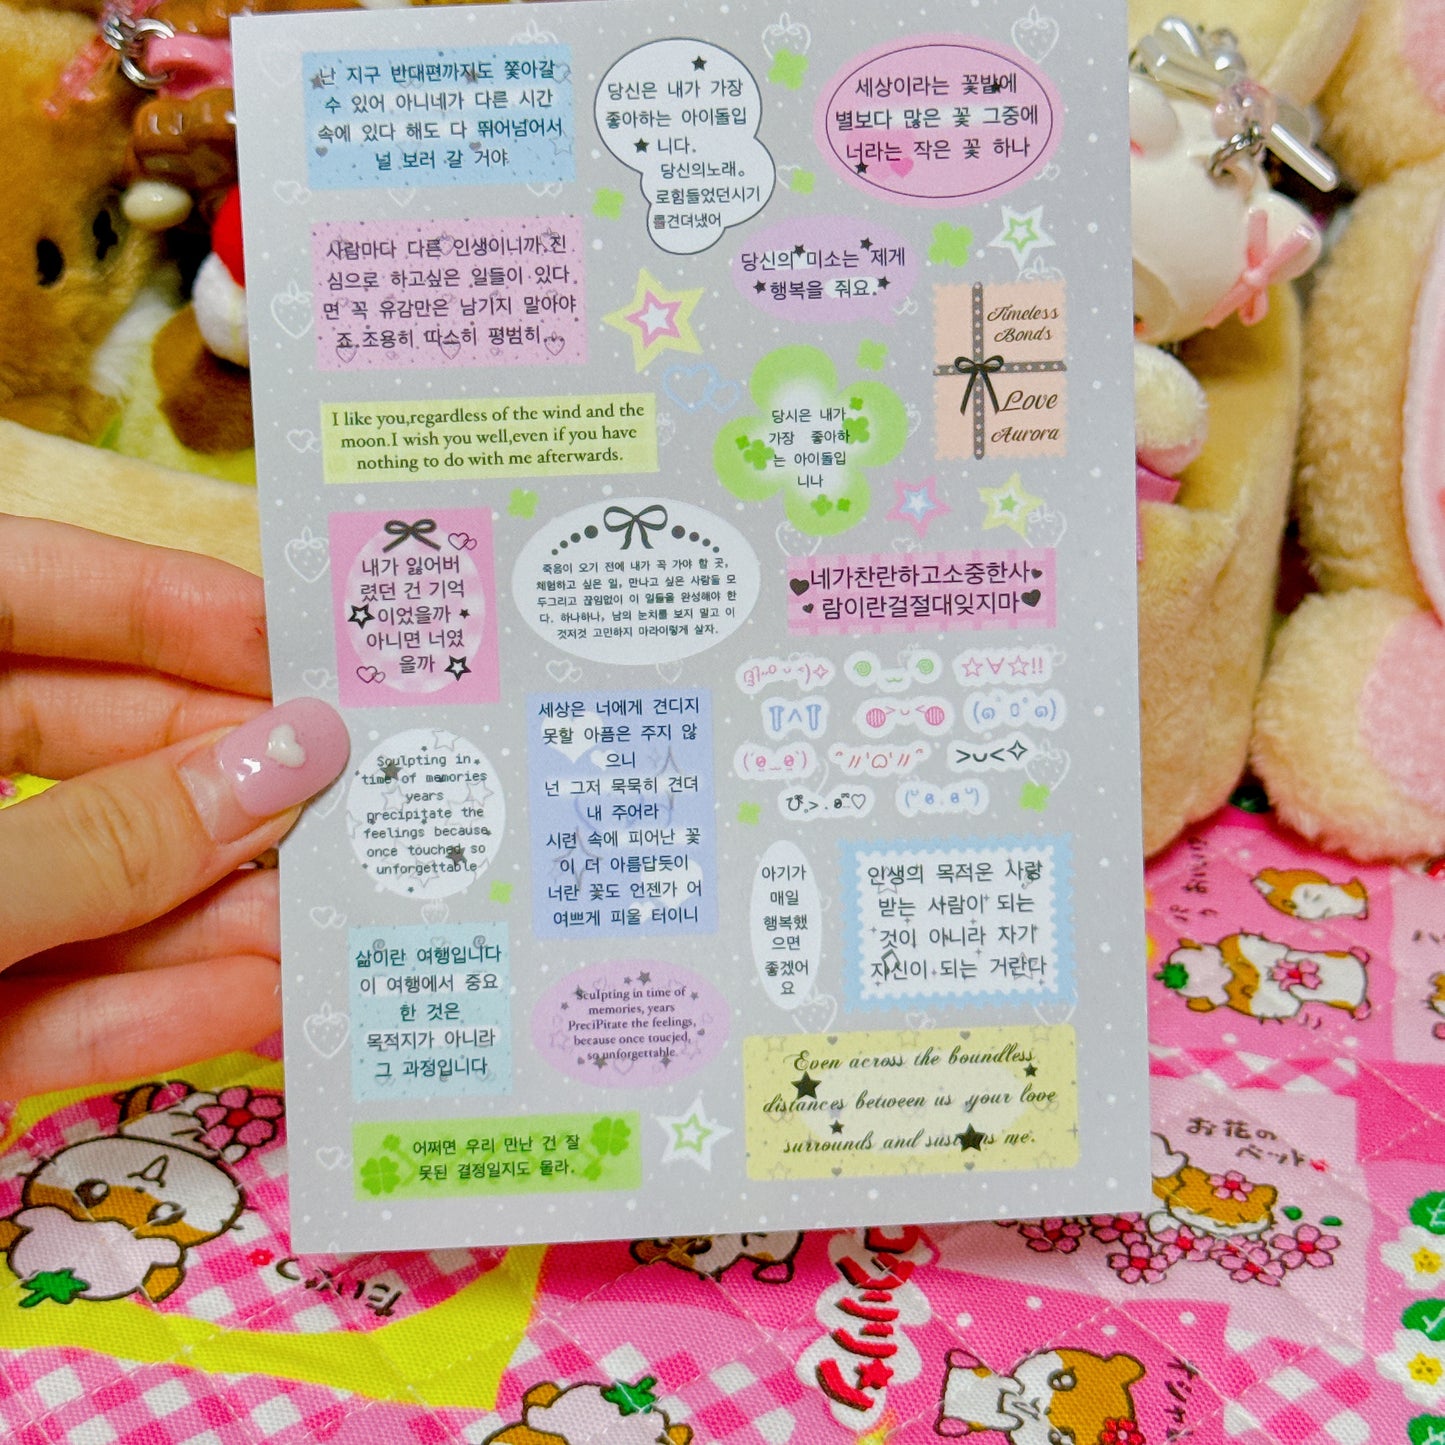 난 지구 반대편까지도 쫓아갈
수 있어 아니네가 다른 시간
속에 있다 해도 다 뛰어넘어서
널 보러 갈 거야
당신은 내가 가장
좋아하는 아이돌입
니다.
당신의노래。
로힘들었던시기
를견뎌냈어
세상이라는 꽃밭에
별보다 많은 꽃 그중에
너라는 작은 꽃 하나
사람마다 다른 인생이니까.진
심으로 하고싶은 일들이 있다
면 꼭 유감만은 남기지 말아야
죠.조용히 따소히 평범히...
당신의 미소는 제게
행복을 줘요.
Timeless
Bonds
Love
Aurora
I like you,regardless of the wind and the
moon.I wish you well,even if you have
nothing to do with me afterwards.
당시은 내가
가장 좋아하
는 아이돌입
니나
내가 잃어버
렸던 건 기억
이었을까
아니면 너였
을까
죽음이 오기 전에 내가 꼭 가야 할 곳,
체험하고 싶은 일, 만나고 싶은 사람들 모
두그리고 끊임없이 이 일들을 완성해야 한
다. 하나하나, 남의 눈치를 보지 말고 이
것저것 고민하지 마라이렇게 살자.
네가찬란하고소중한사
람이란걸절대잊지마
☆∀☆!!
>ᴗ<✧
Sculpting in
time of memories
years
precipitate the
feelings because
once touched so
unforgettable
세상은 너에게 견디지
못할 아픔은 주지 않
으니
넌 그저 묵묵히 견뎌
내 주어라
시련 속에 피어난 꽃
이 더 아름답듯이
너란 꽃도 언젠가 어
여쁘게 피울 터이니
아기가
매일
행복했
으면
좋겠어
요
인생의 목적은 사랑
받는 사람이 되는
것이 아니라 자기
자신이 되는 거란다
삶이란 여행입니다
이 여행에서 중요
한 것은
목적지가 아니라
그 과정입니다
Sculpting in time of
memories, years
PreciPitate the feelings,
because once toucjed,
so unforgettable
Even across the boundless
distances between us your love
surrounds and sustains me.
어쩌면 우리 만난 건 잘
못된 결정일지도 몰라.
お花の